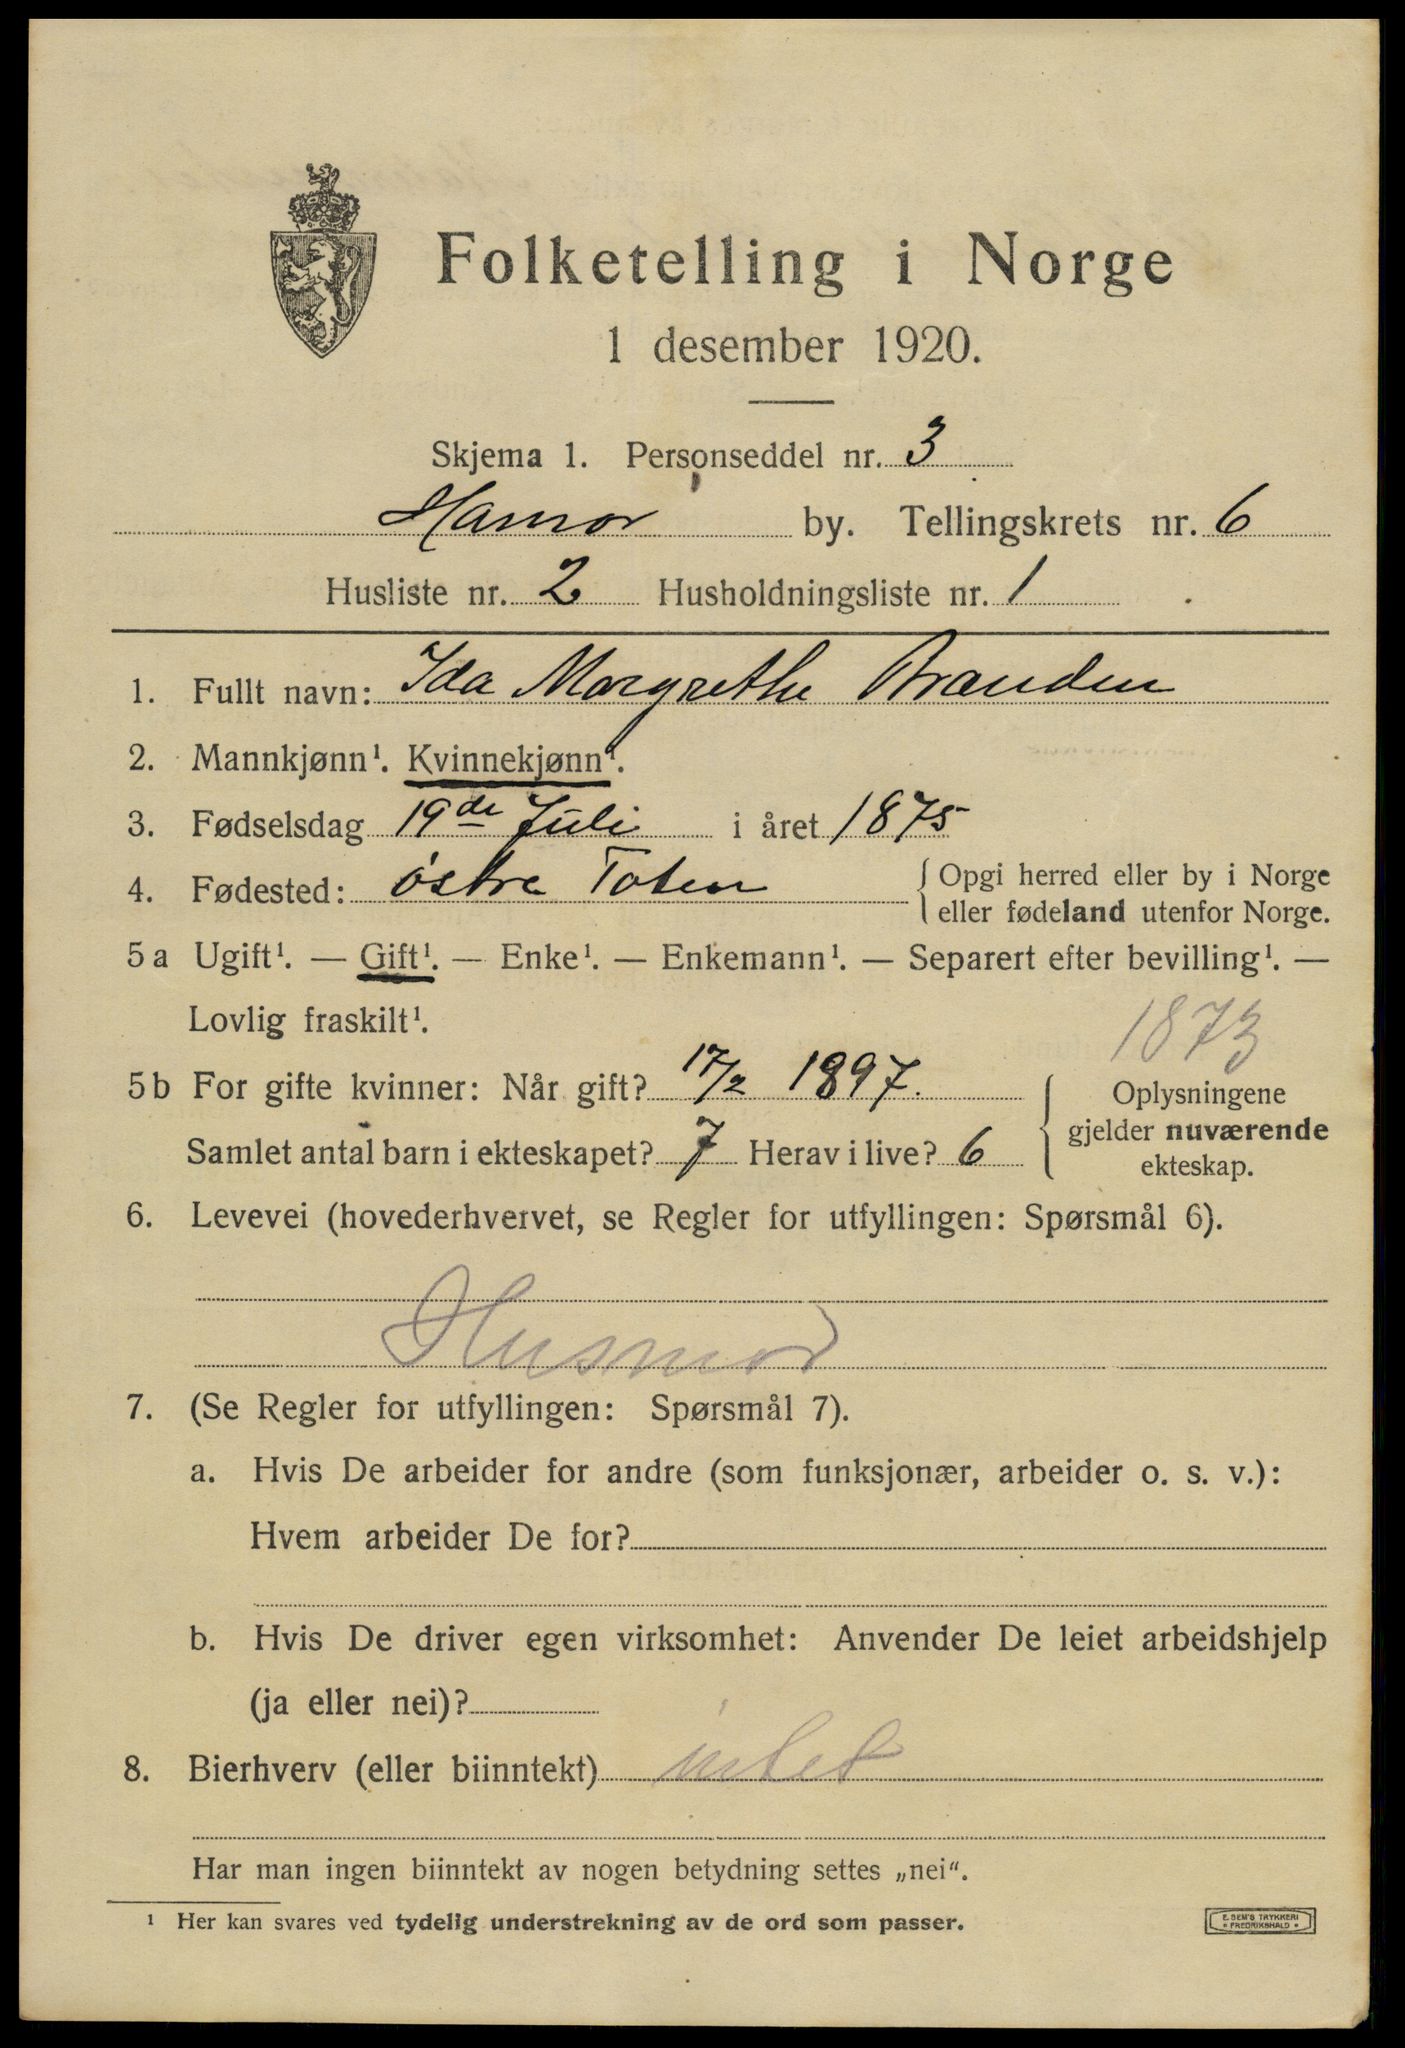 Folketelling i Norge
1 desember 1920.
Skjema 1. Personseddel nr. 3
Hamar by. Tellingskrets nr. 6
Husliste nr. 2 Husholdningsliste nr. 1
1. Fullt navn: Ida Margrethe Brænden
2. Mannkjønn¹. Kvinnekjønn¹.
3. Fødselsdag 19de Juli i året 1875
4. Fødested: østre Toten { Opgi herred eller by i Norge
eller fødeland utenfor Norge.
5 a Ugift¹. — Gift¹. — Enke¹. — Enkemann¹. — Separert efter bevilling¹. —
Lovlig fraskilt¹.
1873
5 b For gifte kvinner: Når gift? 17/2 1897.
Samlet antal barn i ekteskapet? 7 Herav i live? 6
{ Oplysningene
gjelder nuværende
ekteskap.
6. Levevei (hovederhvervet, se Regler for utfyllingen: Spørsmål 6).
Husmor
7. (Se Regler for utfyllingen: Spørsmål 7).
a. Hvis De arbeider for andre (som funksjonær, arbeider o. s. v.):
Hvem arbeider De for?
b. Hvis De driver egen virksomhet: Anvender De leiet arbeidshjelp
(ja eller nei)?
8. Bierhverv (eller biinntekt) intet
Har man ingen biinntekt av nogen betydning settes „nei“.
¹ Her kan svares ved tydelig understrekning av de ord som passer.
E. SEM'S TRYKKERI
• FREDRIKSHALD •